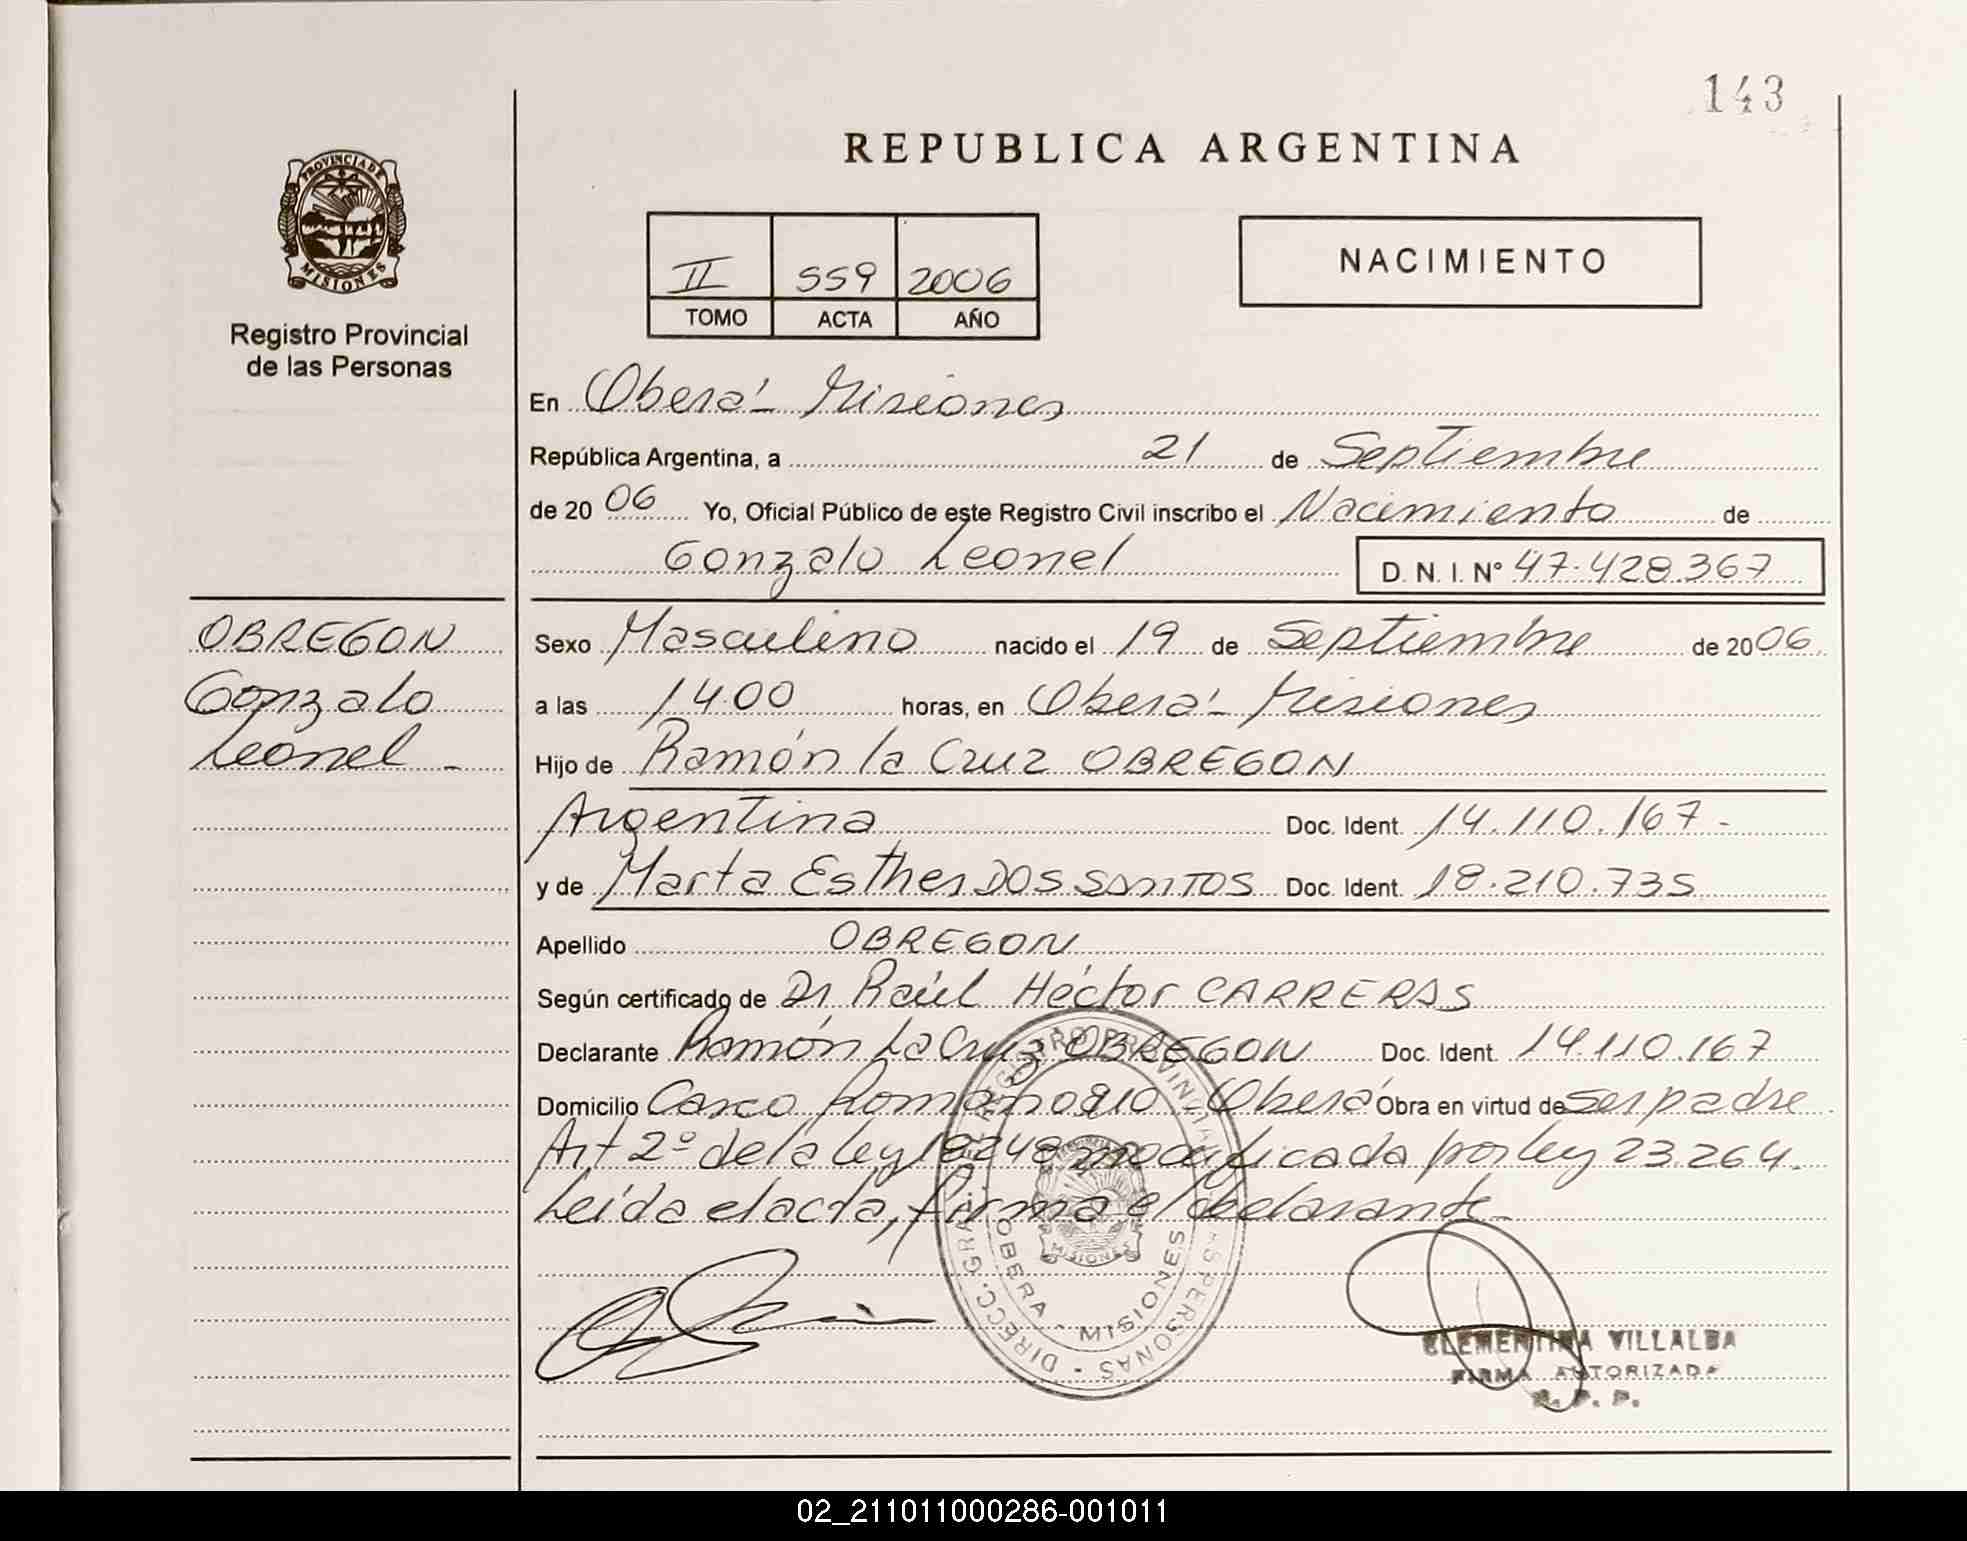 143
REPUBLICA ARGENTINA
PROVINCIA DE
MISIONES
Registro Provincial
de las Personas
II 559 2006
TOMO ACTA AÑO
NACIMIENTO
En Oberá - Misiones
República Argentina, a 21 de Septiembre
de 2006 Yo, Oficial Público de este Registro Civil inscribo el Nacimiento de
Gonzalo Leonel D. N. I. N° 47.428.367
OBREGON
Gonzalo
Leonel -
Sexo Masculino nacido el 19 de Septiembre de 2006
a las 14.00 horas, en Oberá - Misiones
Hijo de Ramón la Cruz OBREGON
Argentina Doc. Ident. 14.110.167 -
y de Marta Esther DOS SANTOS Doc. Ident. 18.210.735
Apellido OBREGON
Según certificado de Dr Raúl Héctor CARRERAS
Declarante Ramón La Cruz OBREGON Doc. Ident. 14.110.167
Domicilio 910 - Oberá Obra en virtud de ser padre
Art 2º de la ley 18248 modificada por ley 23.264.
Leída el acta, firma el declarante -
DIRECC. GRAL. REGISTRO PROVINCIAL DE LAS PERSONAS -
MISIONES
OBERA - MISIONES
CLEMENTINA VILLALBA
FIRMA AUTORIZADA
R. P. P.
02_211011000286-001011